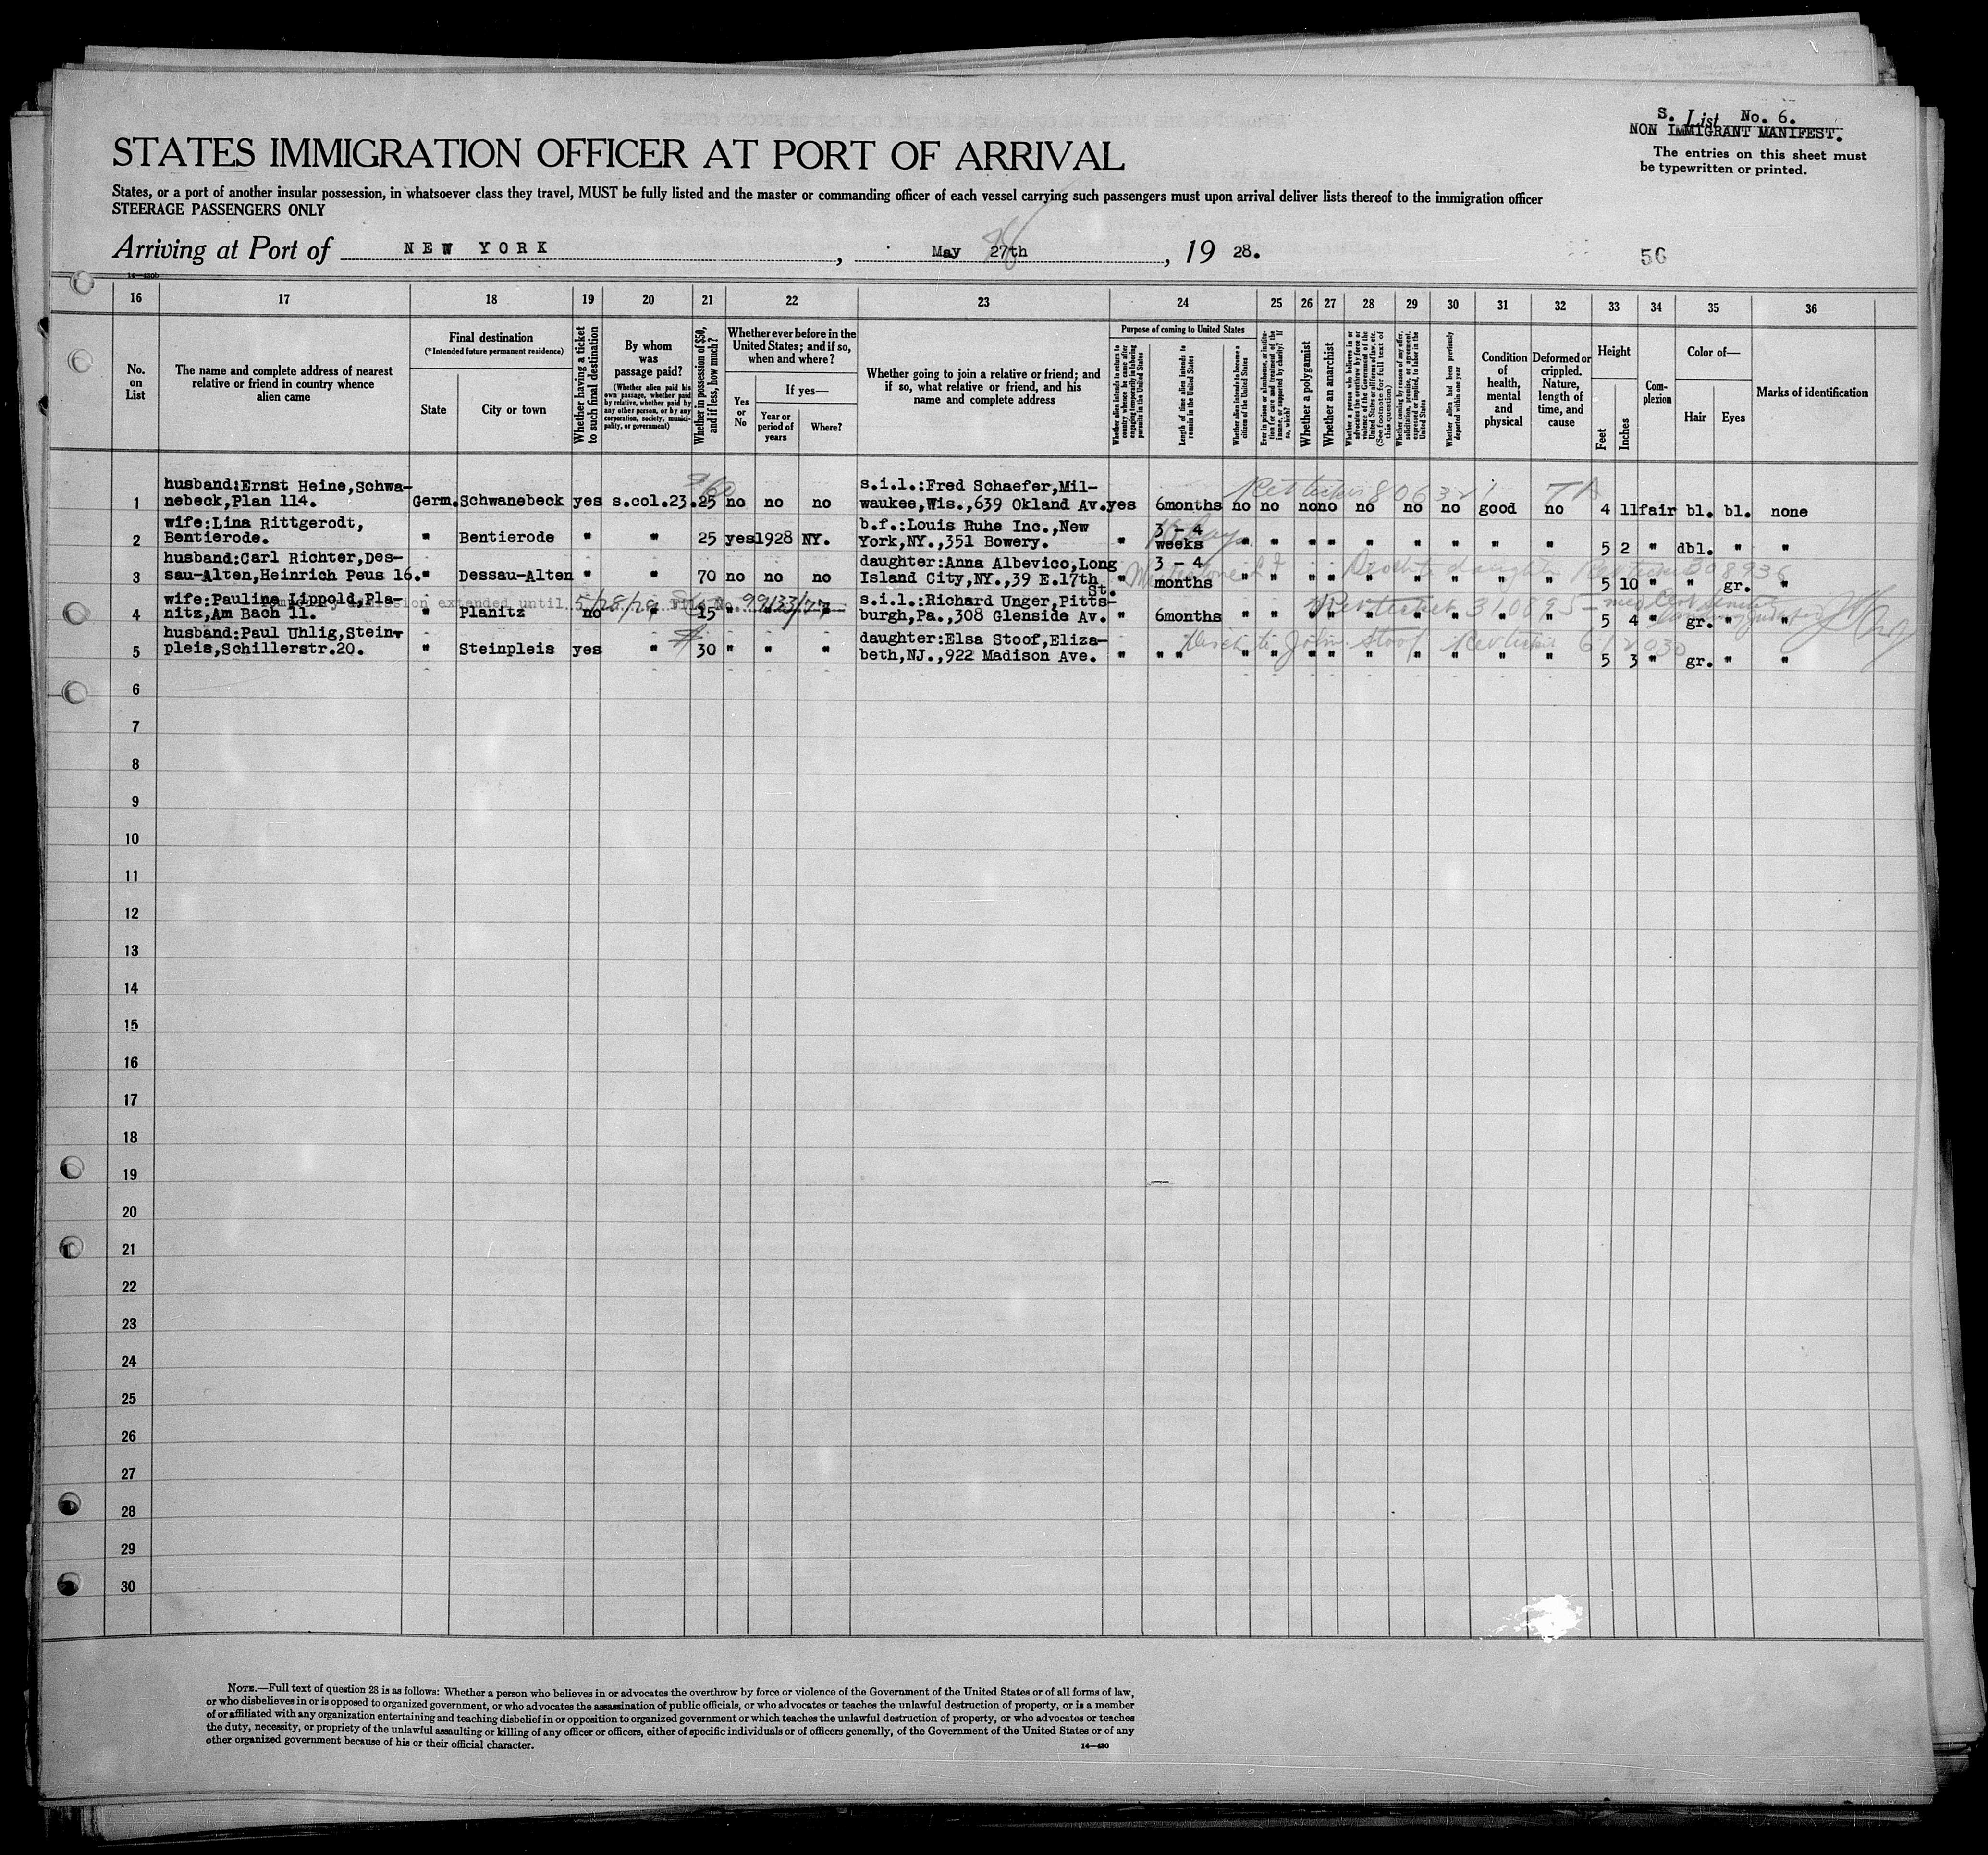 S. List No. 6.
NON IMMIGRANT MANIFEST.
The entries on this sheet must
be typewritten or printed.
STATES IMMIGRATION OFFICER AT PORT OF ARRIVAL
States, or a port of another insular possession, in whatsoever class they travel, MUST be fully listed and the master or commanding officer of each vessel carrying such passengers must upon arrival deliver lists thereof to the immigration officer
STEERAGE PASSENGERS ONLY
Arriving at Port of NEW YORK, May 27th, 1928.
56
14—430b
16 17 18 19 20 21 22 23 24 25 26 27 28 29 30 31 32 33 34 35 36
No. on List
The name and complete address of nearest relative or friend in country whence alien came
Final destination
(*Intended future permanent residence)
State
City or town
Whether having a ticket to such final destination
By whom was passage paid?
(Whether alien paid his own passage, whether paid by relative, whether paid by any other person, or by any corporation, society, municipality, or government)
Whether in possession of $50, and if less, how much?
Whether ever before in the United States; and if so, when and where?
Yes or No
If yes—
Year or period of years
Where?
Whether going to join a relative or friend; and if so, what relative or friend, and his name and complete address
Purpose of coming to United States
Whether alien intends to return to country whence he came after engaging temporarily in laboring pursuits in the United States
Length of time alien intends to remain in the United States
Whether alien intends to become a citizen of the United States
Ever in prison or almshouse, or institution for care and treatment of the insane, or supported by charity? If so, which?
Whether a polygamist
Whether an anarchist
Whether a person who believes in or advocates the overthrow by force or violence of the Government of the United States or all forms of law, etc. (See footnote for full text of this question)
Whether coming by reason of any offer, solicitation, promise, or agreement, expressed or implied, to labor in the United States
Whether alien had been previously deported within one year
Condition of health, mental and physical
Deformed or crippled. Nature, length of time, and cause
Height
Feet
Inches
Complexion
Color of—
Hair
Eyes
Marks of identification
1 husband:Ernst Heine,Schwa-
nebeck,Plan 114. Germ. Schwanebeck yes s.col.23. 25 no no no s.i.l.:Fred Schaefer,Mil-
waukee,Wis.,639 Okland Av. yes 6months no no no no no no no good no 4 11 fair bl. bl. none
2 wife:Lina Rittgerodt,
Bentierode. " Bentierode " " 25 yes 1928 NY. b.f.:Louis Ruhe Inc.,New
York,NY.,351 Bowery. " 3 - 4
weeks " " " " " " " " " 5 2 " dbl. " "
3 husband:Carl Richter,Des-
sau-Alten,Heinrich Peus 16. " Dessau-Alten " " 70 no no no daughter:Anna Albevico,Long
Island City,NY.,39 E.17th St. " 3 - 4
months " " " " " " " " " 5 10 " " gr. "
4 wife:Pauline Lippold,Pla-
nitz,Am Bach 11. " Planitz no " 15 " " " s.i.l.:Richard Unger,Pitts-
burgh,Pa.,308 Glenside Av. " 6months " " " " " " " " " 5 4 " gr. " "
extended until 5/28/29 99133/77
5 husband:Paul Uhlig,Stein-
pleis,Schillerstr.20. " Steinpleis yes " 30 " " " daughter:Elsa Stoof,Eliza-
beth,NJ.,922 Madison Ave. " " " " " " " " " " " " 5 3 " gr. " "
6
7
8
9
10
11
12
13
14
15
16
17
18
19
20
21
22
23
24
25
26
27
28
29
30
NOTE.—Full text of question 28 is as follows: Whether a person who believes in or advocates the overthrow by force or violence of the Government of the United States or of all forms of law,
or who disbelieves in or is opposed to organized government, or who advocates the assassination of public officials, or who advocates or teaches the unlawful destruction of property, or is a member
of or affiliated with any organization entertaining and teaching disbelief in or opposition to organized government or which teaches the unlawful destruction of property, or who advocates or teaches
the duty, necessity, or propriety of the unlawful assaulting or killing of any officer or officers, either of specific individuals or of officers generally, of the Government of the United States or of any
other organized government because of his or their official character.
14—430